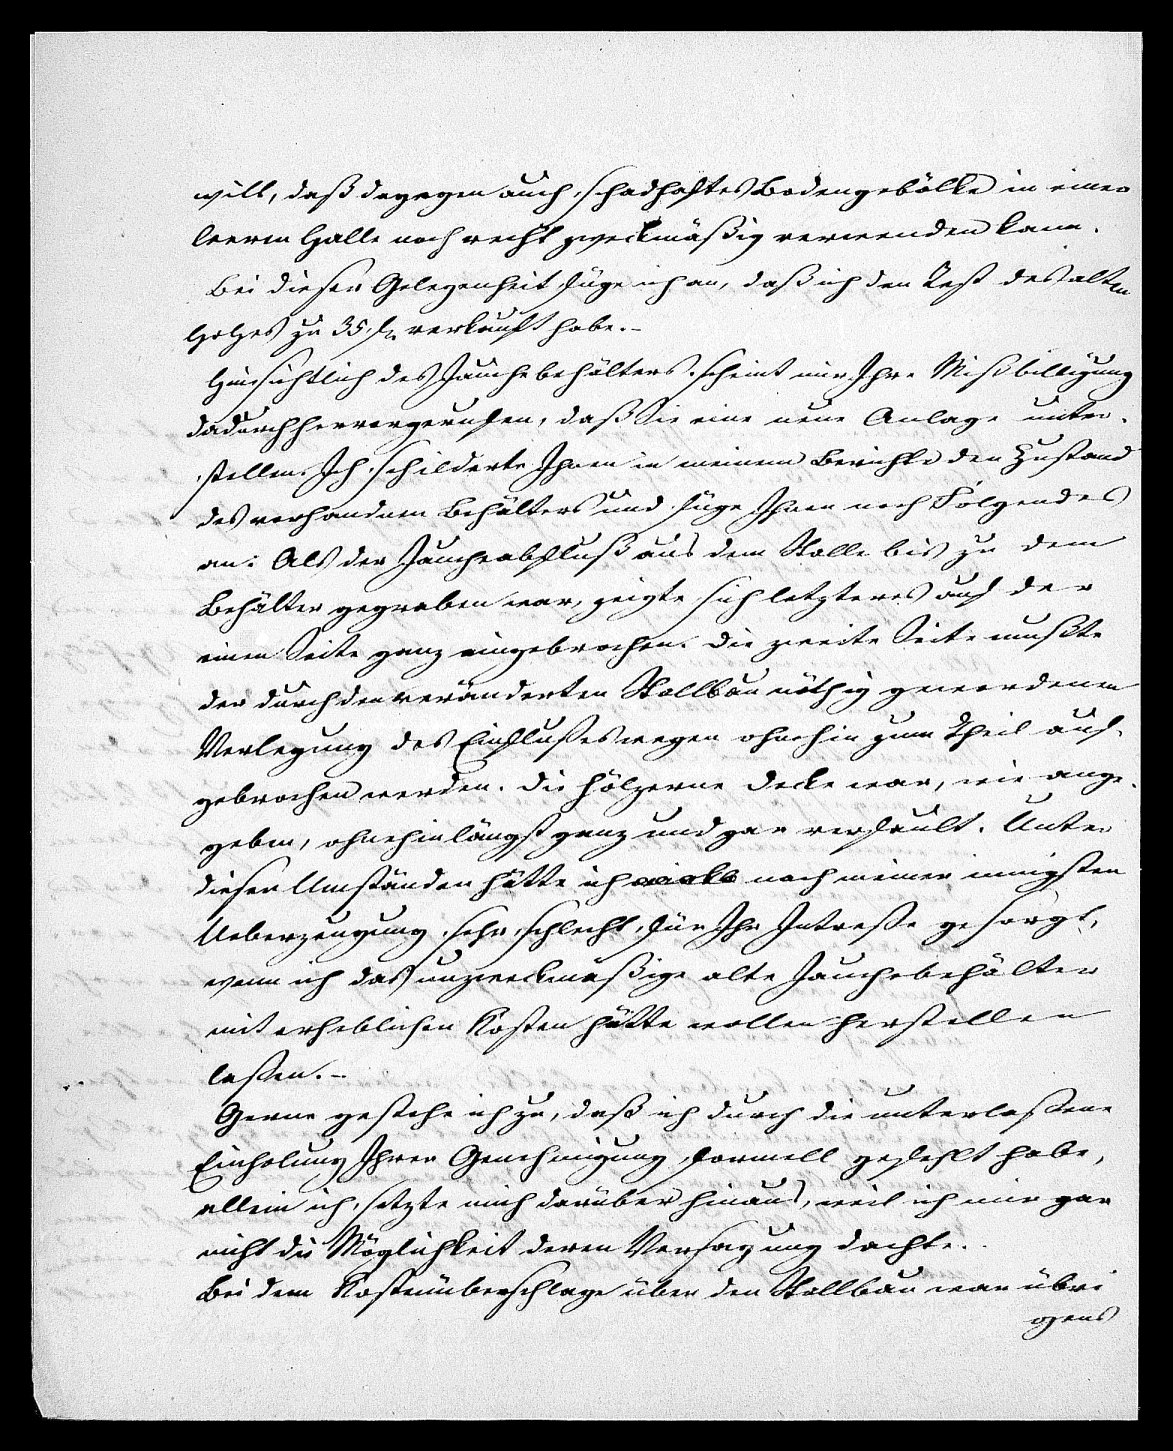 will, daß dagegen auch schadhaftes Bodengebälke in einer
leeren Halle noch recht zweckmäßig verwenden kann.
Bei dieser Gelegenheit füge ich an, daß ich den Rest des alten
Holzes zu 35 fl. verkauft habe. –
Hinsichtlich des Jauchebehälters scheint mir Ihre Mißbilligung
dadurch hervorgerufen, daß Sie eine neue Anlage unter-
stellen. Ich schilderte Ihnen in meinem Berichte den Zustand
des vorhandnen Behälters und füge Ihnen noch Folgendes
an: Als der Jaucheabfluß aus dem Stalle bis zu dem
Behälter gegraben war, zeigte sich letzteres auf der
einen Seite ganz eingebrochen. Die zweite Seite mußte
der durch den veränderten Stallbau nöthig gewordenen
Verlegung des Einflußes wegen ohnehin zum Theil auf-
gebrochen werden. Die hölzerne Decke war, wie ange-
geben, ohnehin längst ganz und gar verfault. Unter
diesen Umständen hätte ich nach meiner innigsten
Ueberzeugung sehr schlecht für Ihr Intreße gesorgt,
wenn ich das unzweckmäßige alte Jauchebehälter
mit erheblichen Kosten hätte wollen herstellen
laßen. –
Gerne gestehe ich zu, daß ich durch die unterlaßene
Einholung Ihrer Genehmigung formell gefehlt habe,
allein ich setzte mich darüber hinaus, weil ich mir gar
nicht die Möglichkeit deren Versagung dachte.
Bei dem Kostenüberschlage über den Stallbau war übri
gens